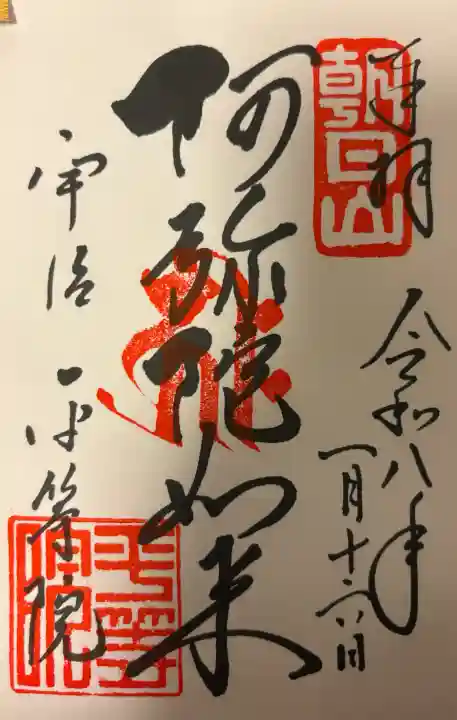 奉拝
朝日山
令和八年
一月十六日
阿弥陀如来
宇治 平等院
平等院